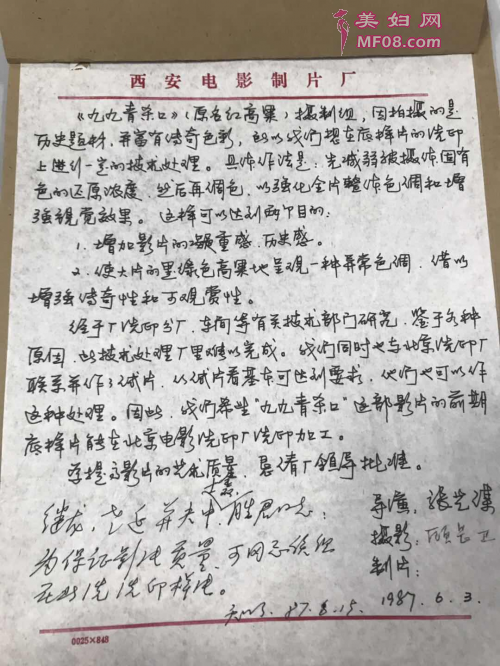 美妇网
MF08.com
西安电影制片厂
《九九青杀口》（原名红高粱）摄制组，因拍摄的是
历史题材，并富有传奇色彩，所以我们想在底样片的洗印
上进行一定的技术处理。具体作法是：先减弱被摄体固有
色的还原浓度，然后再调色，以强化全片整体色调和增
强视觉效果。这样可以达到两个目的：
1. 增加影片的凝重感、历史感。
2. 使大片的墨绿色高粱地呈现一种异常色调，借以
增强传奇性和可观赏性。
经于厂洗印分厂，车间等有关技术部门研究，鉴于各种
原因，此技术处理厂里难以完成。我们同时也与北京洗印厂
联系并作了试片，从试片看基本可达到要求，他们也可以作
这种处理。因此，我们希望“九九青杀口”这部影片的前期
底样片能在北京电影洗印厂洗印加工。
为提高影片的艺术质量，恳请厂领导批准。
导演：张艺谋
摄影：顾长卫
制片：
1987.6.3.
同志：
为保证影片质量，可同意
在北洗洗印样片。
87.6.15.
0025×848